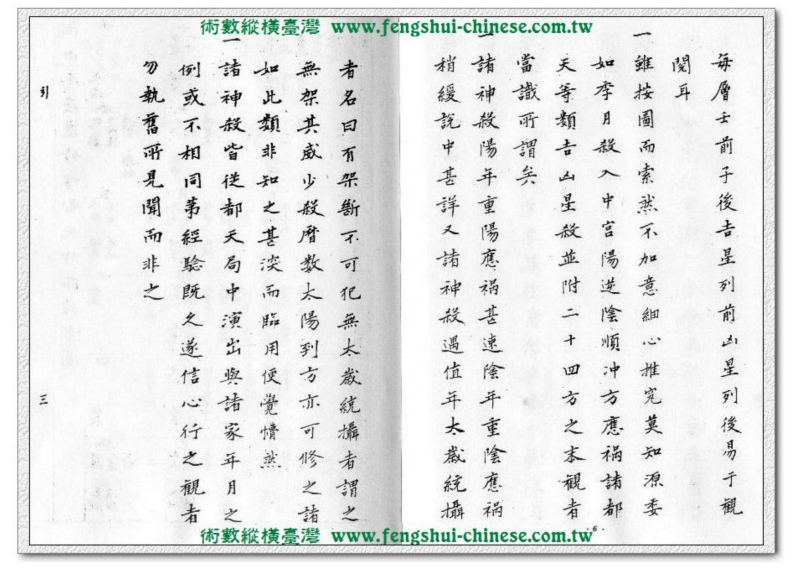 術數縱橫臺灣 www.fengshui-chinese.com.tw
每層士前子後吉星列前凶星列後易于觀
閱耳
一雖按圖而索然不加意細心推究莫知源委
如季月殺入中宮陽逆陰順冲方應禍諸都
天等類吉凶星殺並附二十四方之本觀者
當識所謂矣
一諸神殺陽年重陽應禍甚速陰年重陰應禍
稍緩說中甚詳又諸神殺遇值年太歲統攝
·6·
者名曰有架斷不可犯無太歲統攝者謂之
無架其威少殺曆數太陽到方亦可修之諸
如此類非知之甚深而臨用便覺懵然
一諸神殺皆從都天局中演出與諸家年月之
例或不相同第經驗既久遂信心行之觀者
勿執舊所見聞而非之
引
三
術數縱橫臺灣 www.fengshui-chinese.com.tw